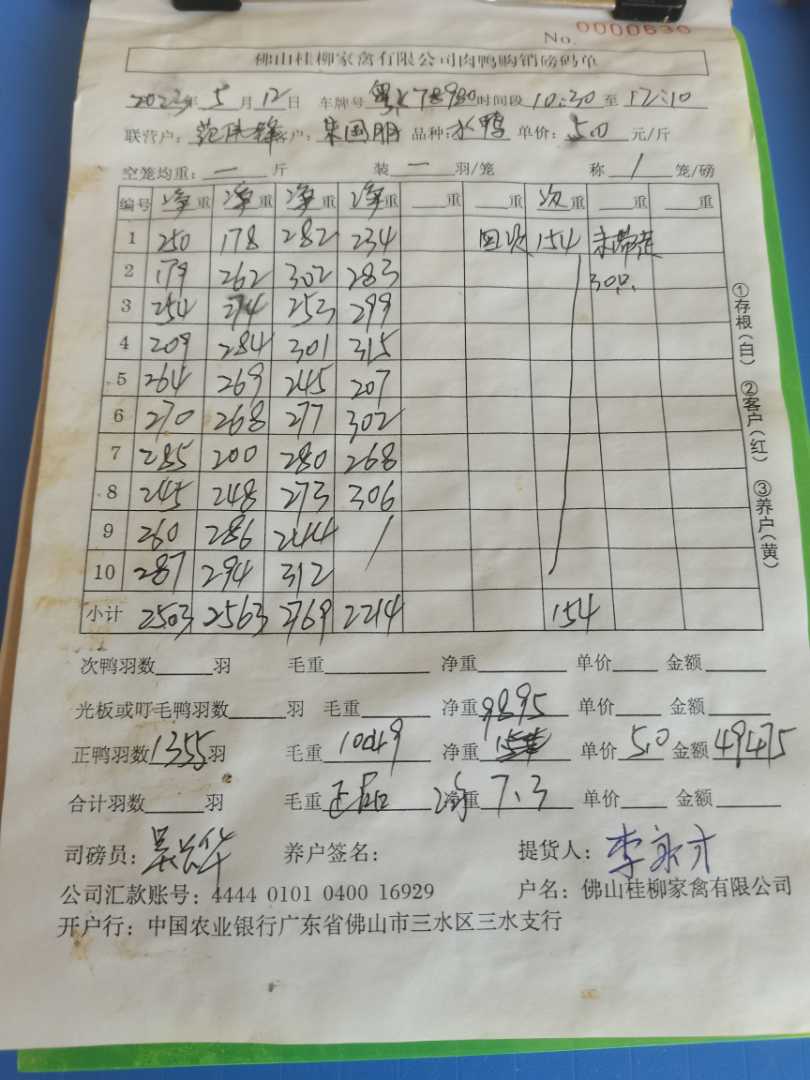 No. 0000630
佛山桂柳家禽有限公司肉鸭购销磅码单
2023年 5月12日 车牌号 粤 78980 时间段 10:30 至 12:10
联营户: 范 锋 客户: 朱国朋 品种: 水鸭 单价: 5.0 元/斤
空笼均重: 一 斤 装 一 羽/笼 称 1 笼/磅
编号 净重 净重 净重 净重 重 重 次重 重 重
1 250 178 282 234 回收 154 未带毛
2 179 262 302 283 30只
3 254 274 253 299
4 209 284 301 315
5 264 269 245 207
6 270 268 277 302
7 285 200 280 268
8 245 248 273 306
9 260 286 244 /
10 287 294 312
小计 2503 2563 2769 2214 154
①存根(白) ②客户(红) ③养户(黄)
次鸭羽数 羽 毛重 净重 单价 金额
光板或叮毛鸭羽数 羽 毛重 净重 9895 单价 金额
正鸭羽数 1355 羽 毛重 10049 净重 单价 5.0 金额 49475
合计羽数 羽 毛重 正品 净重 7.3 单价 金额
司磅员: 吴 华 养户签名: 提货人: 李永才
公司汇款账号: 4444 0101 0400 16929 户名: 佛山桂柳家禽有限公司
开户行: 中国农业银行广东省佛山市三水区三水支行